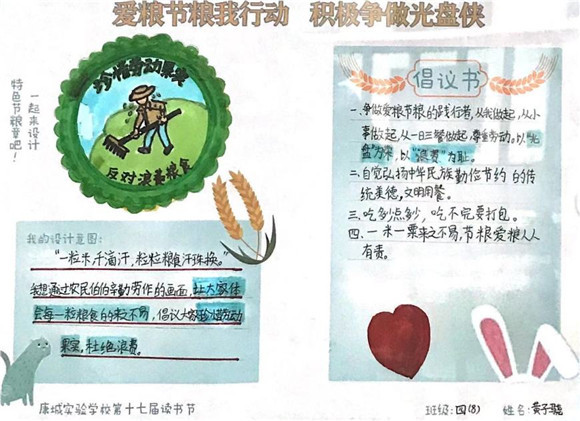 爱粮节粮我行动 积极争做光盘侠
一起来设计
特色节粮章吧！
珍惜劳动果实
反对浪费粮食
我的设计意图：
“一粒米，千滴汗，粒粒粮食汗珠换。”
我想通过农民伯伯辛勤劳作的画面，让大家体
会每一粒粮食的来之不易，倡议大家珍惜劳动
果实，杜绝浪费。
倡议书
一、争做爱粮节粮的践行者，从我做起，从小
事做起，从一日三餐做起，尊重劳动。以“光
盘”为荣，以“浪费”为耻。
二、自觉弘扬中华民族勤俭节约的传
统美德，文明用餐。
三、吃多少点多少，吃不完要打包。
四、一米一粟来之不易，节粮爱粮人人
有责。
康城实验学校第十七届读书节
班级：四(8) 姓名：黄子